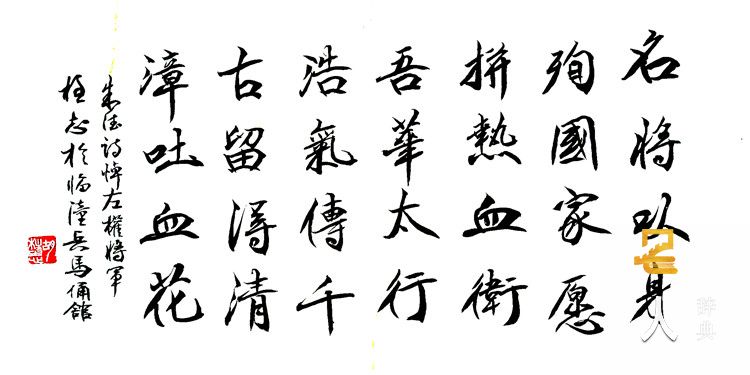 名將以身
殉國家愿
拼熱血衛
吾華太行
浩氣傳千
古留得清
漳吐血花
朱德詩悼左權將軍
志於临潼兵馬俑館
辞典